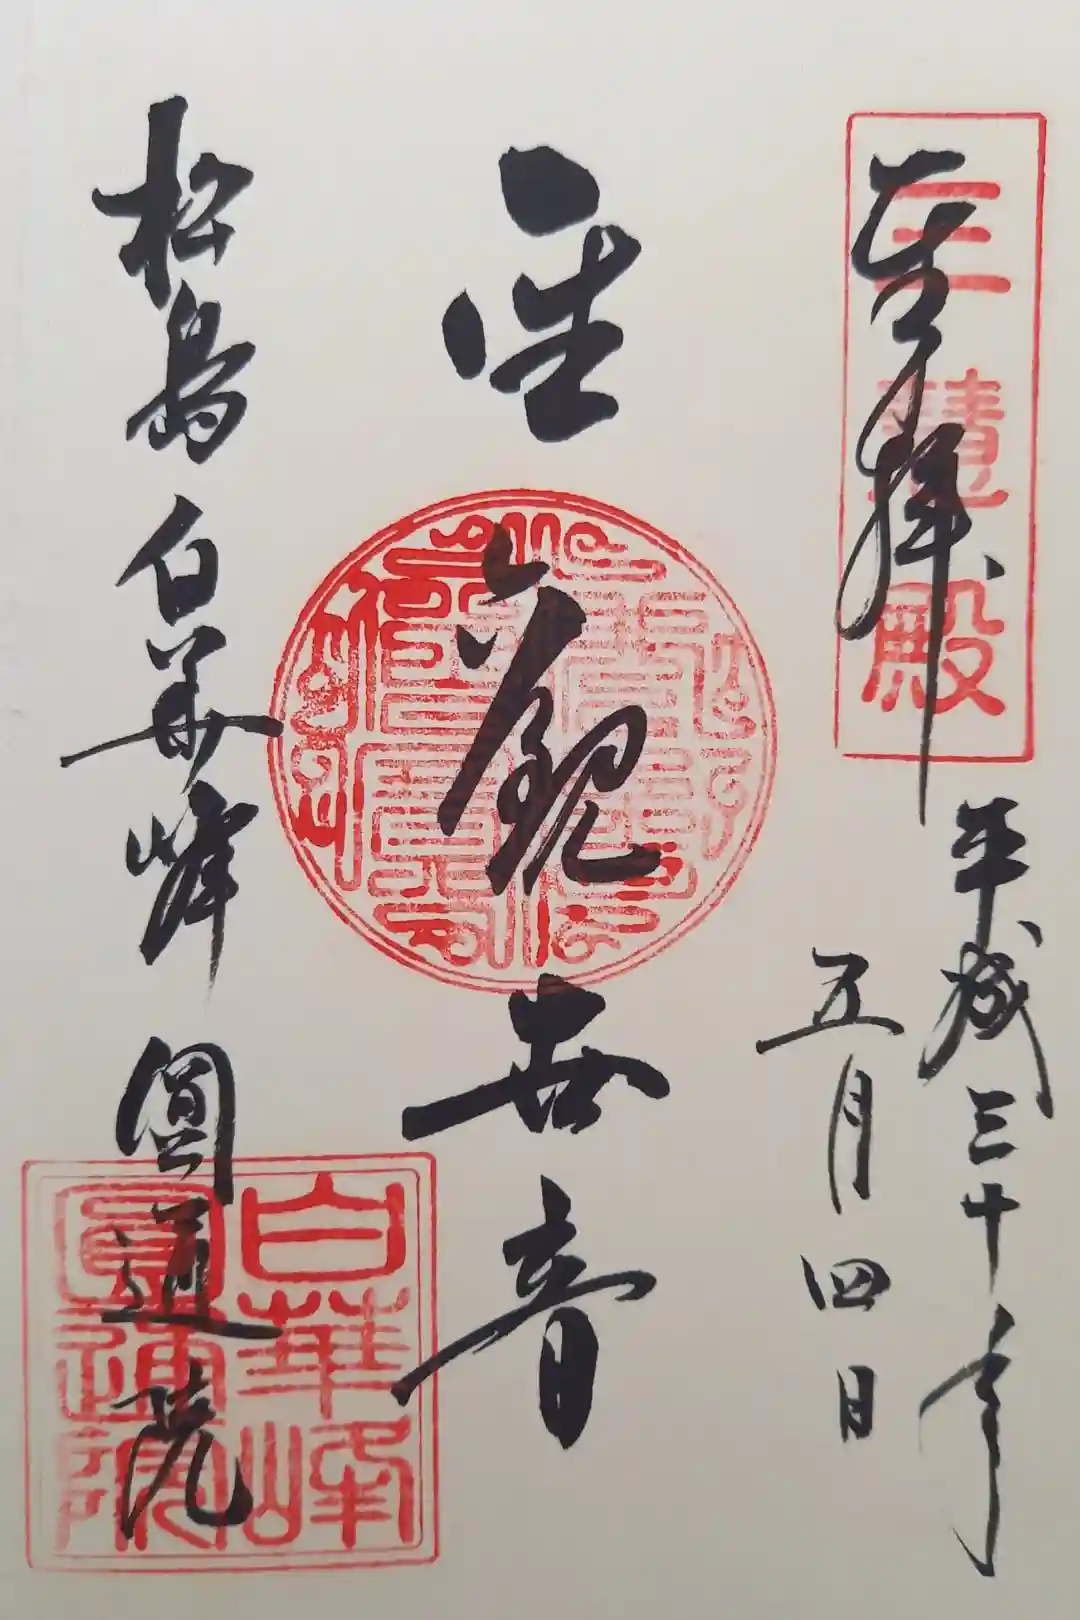 奉拝
三慧殿
平成三十年
五月四日
聖観世音
松島白華峰圓通院
白華峰
圓通院